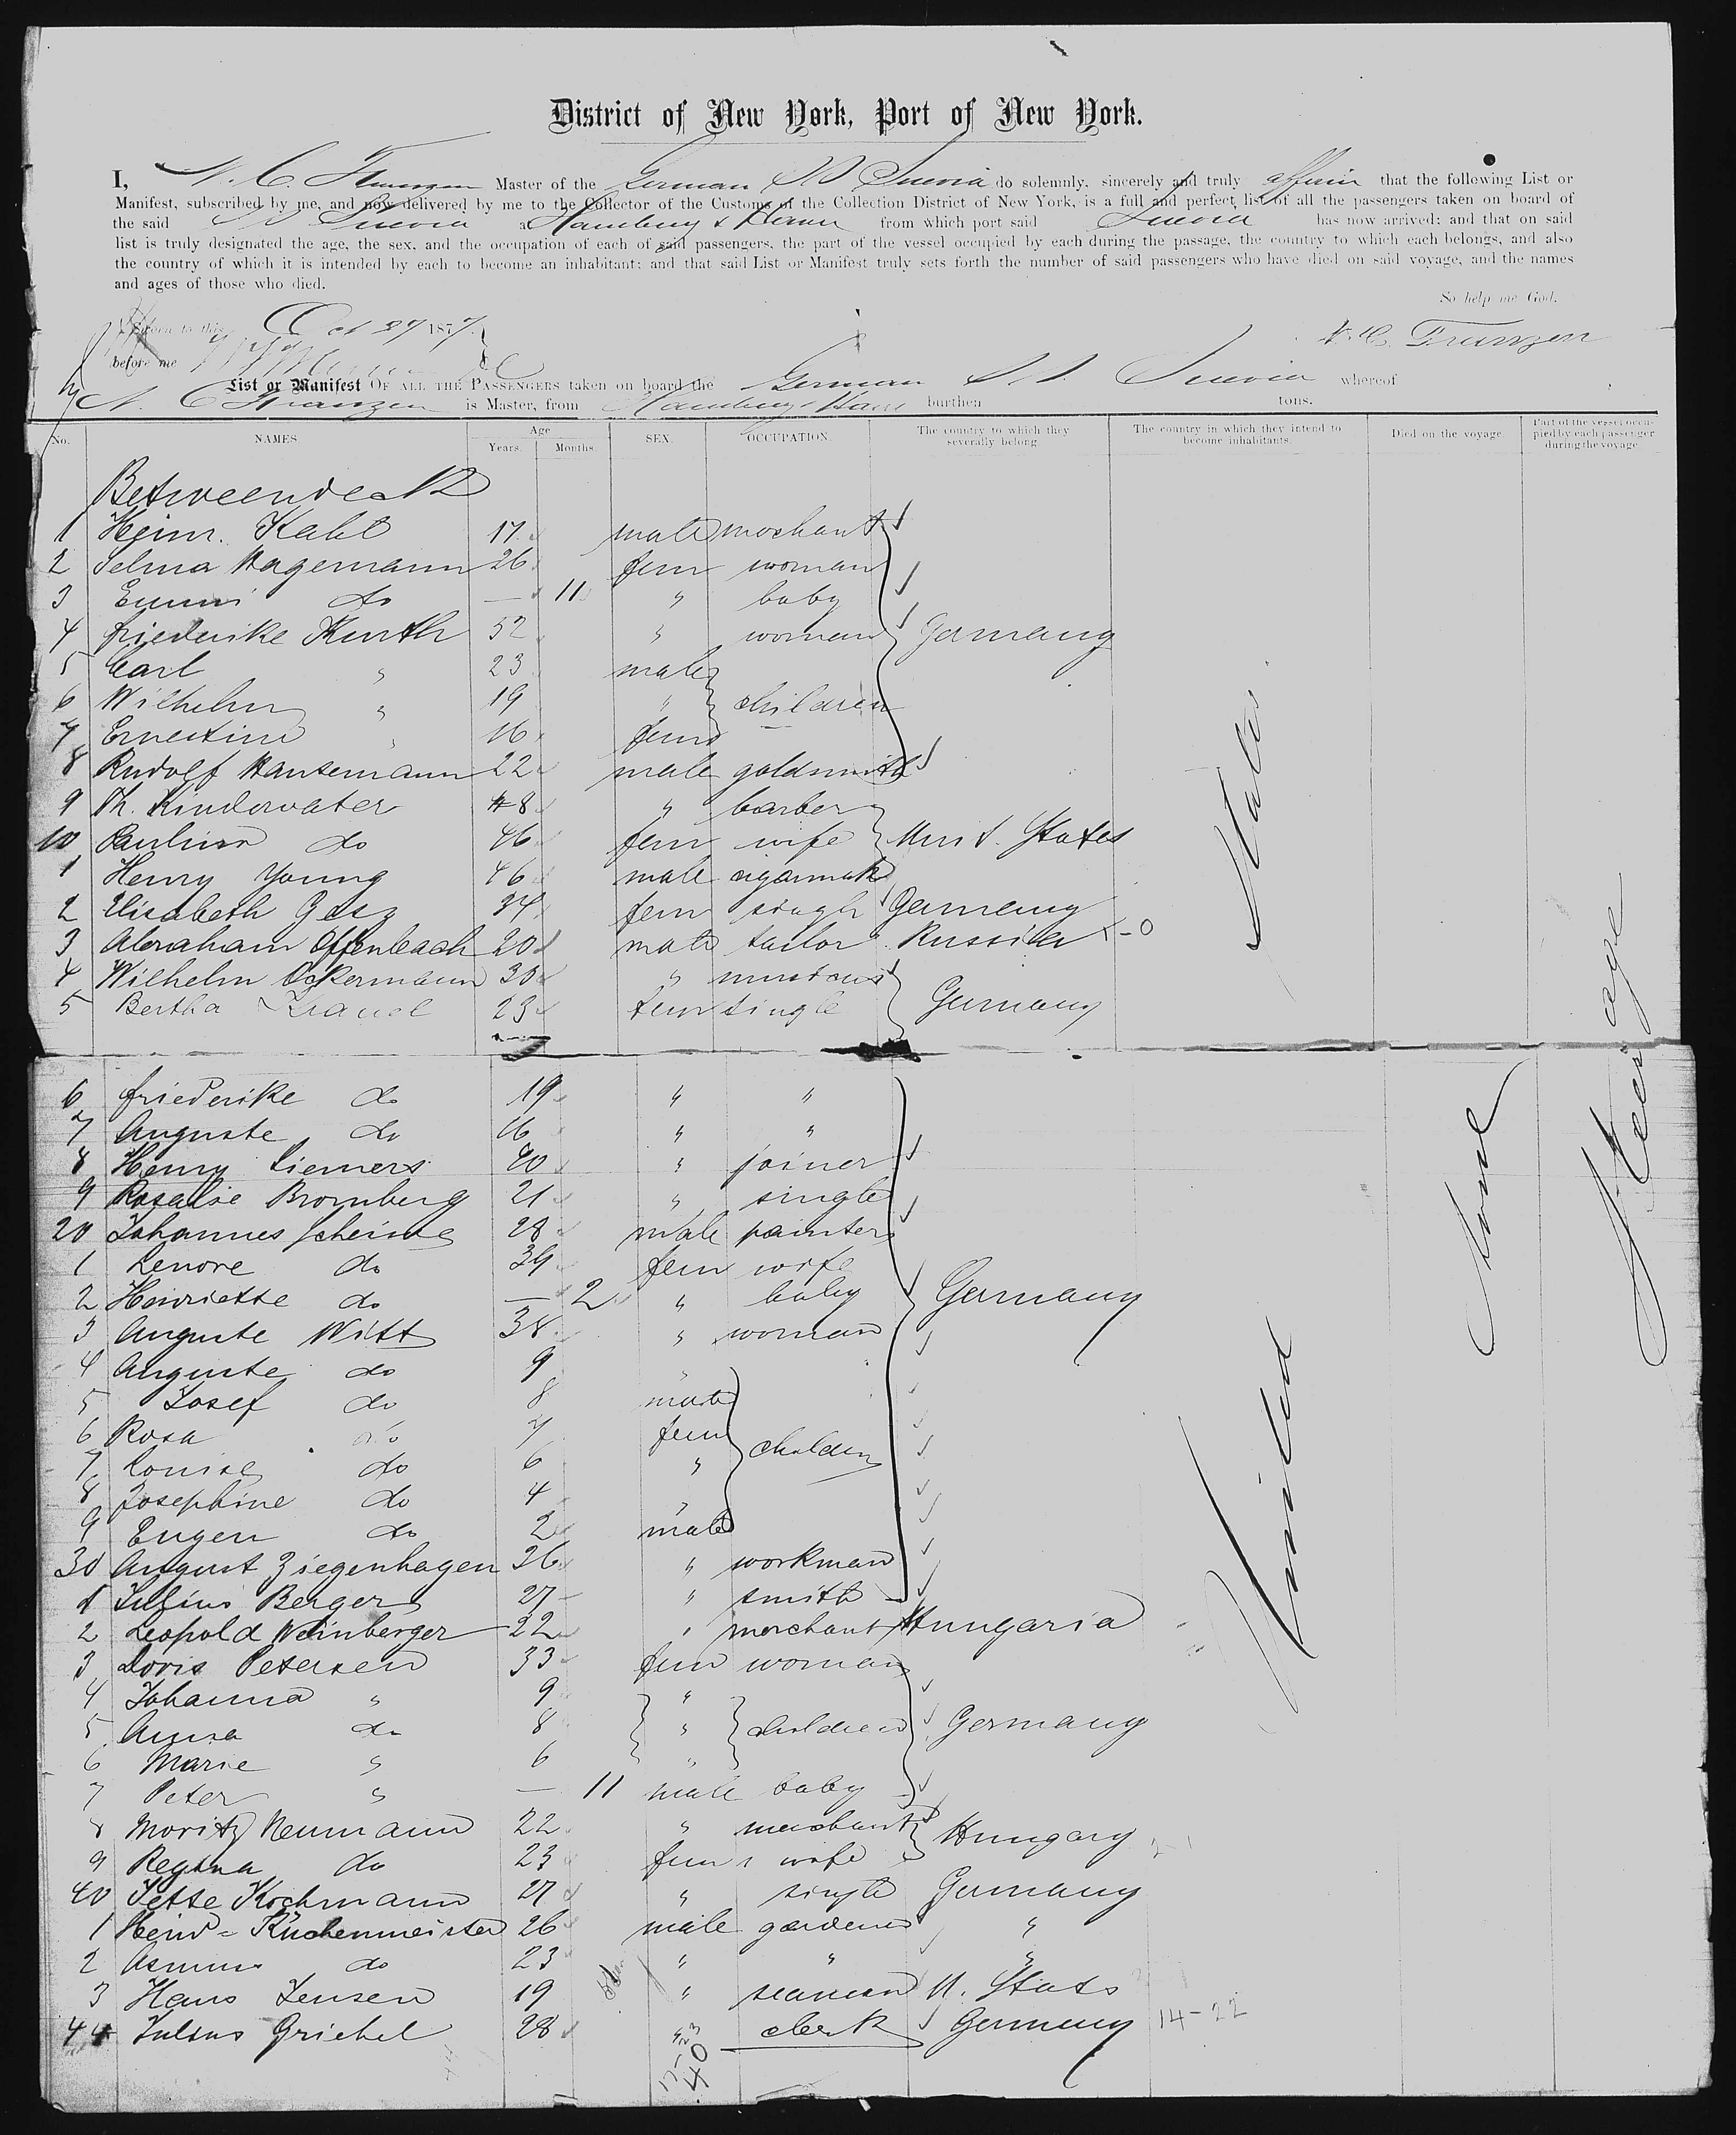 District of New York, Port of New York.
I, N. C. Franzen Master of the German SS Suevia do solemnly, sincerely and truly affirm that the following List or
Manifest, subscribed by me, and now delivered by me to the Collector of the Customs of the Collection District of New York, is a full and perfect list of all the passengers taken on board of
the said SS Suevia at Hamburg & Havre from which port said Suevia has now arrived; and that on said
list is truly designated the age, the sex, and the occupation of each of said passengers, the part of the vessel occupied by each during the passage, the country to which each belongs, and also
the country of which it is intended by each to become an inhabitant; and that said List or Manifest truly sets forth the number of said passengers who have died on said voyage, and the names
and ages of those who died.
So help me God.
Sworn to this Oct 27 1877. N. C. Franzen
before me
List or Manifest OF ALL THE PASSENGERS taken on board the German S.S. Suevia whereof
N. C. Franzen is Master, from Hamburg & Havre burthen tons.
No. NAMES Age Years. Months. SEX. OCCUPATION. The country to which they severally belong The country in which they intend to become inhabitants. Died on the voyage Part of the vessel occupied by each passenger during the voyage
Betweendeck
1 Heinr. Kahl 17 male
2 Selma Hagemann 26 fem woman
3 Emmi do — 11 " baby
4 friederike Kurth 52 " woman Germany
5 Carl " 23 male
6 Wilhelm " 19 " children
7 Ernestine " 16 fem
8 Rudolf Hansemann 22 male goldsmith
9 Th. Kinderwater 48 " barber
10 Pauline do 46 fem wife Unit. States
1 Henry Young 46 male cigarmak
2 Elisabeth Gesz 34 fem single Germany
3 Abraham Offenbach 20 male tailor Russia
4 Wilhelm Ockermann 30 "
5 Bertha 23 fem single Germany
6 friederike do 19 " "
7 Auguste do 16 " "
8 Henry Siemers 40 " joiner
9 Rosalie Bromberg 21 " single
20 Johannes 28 male painter
1 Lenore do 39 fem wife
2 Henriette do — 2 " baby Germany
3 Auguste Witt 38 " woman
4 Auguste do 9 "
5 Josef do 8 male
6 Rosa do 7 fem
7 Louise do 6 " children
8 Josephine do 4 "
9 Eugen do 2 male
30 August Ziegenhagen 26 " workman
1 Julius Berger 27 " smith
2 Leopold Weinberger 22 " merchant Hungaria
3 Doris Petersen 33 fem woman
4 Johanna " 9 "
5 Anna do 8 " children Germany
6 Marie " 6 "
7 Peter " — 11 male baby
8 Moritz Neumann 22 " merchant Hungary
9 Regina do 23 fem wife
40 Jette Kochmann 27 " single Germany
1 Heinr. Küchenmeister 26 male gardener "
2 Asmus do 23 " " "
3 Hans Jensen 19 " seaman U. States
44 Julius Griebel 28 " clerk Germany 14-22
United States
None
Steerage